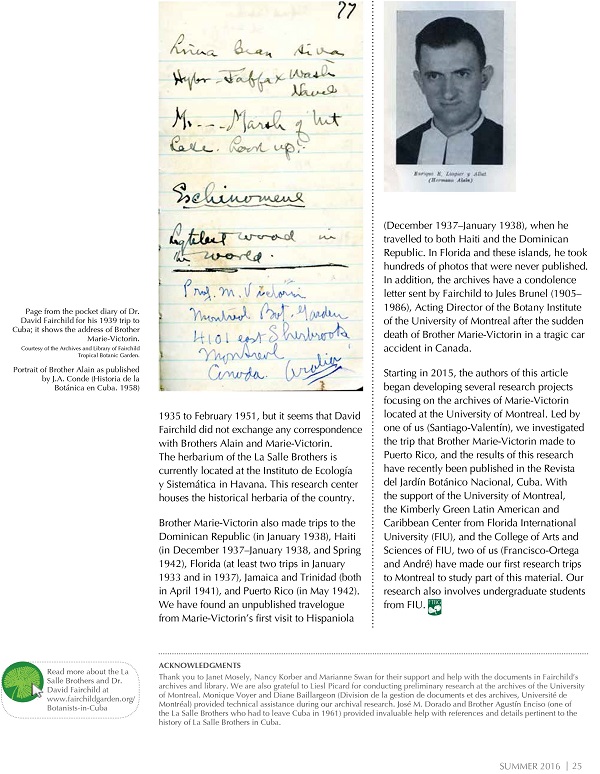 77
Lima Bean
Hyber - Fairfax Wash
Navel
M. --- Marsh of
Lake. Look up!
Eschinomene
Lightest wood in
the world.
Prof. M. Victorin
Montreal Bot. Garden
4101 east Sherbrooke
Montreal
Canada.
Enrique E. Looguer y Allut
(Hermano Alain)
Page from the pocket diary of Dr.
David Fairchild for his 1939 trip to
Cuba; it shows the address of Brother
Marie-Victorin.
Courtesy of the Archives and Library of Fairchild
Tropical Botanic Garden.
Portrait of Brother Alain as published
by J.A. Conde (Historia de la
Botánica en Cuba. 1958)
1935 to February 1951, but it seems that David
Fairchild did not exchange any correspondence
with Brothers Alain and Marie-Victorin.
The herbarium of the La Salle Brothers is
currently located at the Instituto de Ecología
y Sistemática in Havana. This research center
houses the historical herbaria of the country.
Brother Marie-Victorin also made trips to the
Dominican Republic (in January 1938), Haiti
(in December 1937–January 1938, and Spring
1942), Florida (at least two trips in January
1933 and in 1937), Jamaica and Trinidad (both
in April 1941), and Puerto Rico (in May 1942).
We have found an unpublished travelogue
from Marie-Victorin's first visit to Hispaniola
(December 1937–January 1938), when he
travelled to both Haiti and the Dominican
Republic. In Florida and these islands, he took
hundreds of photos that were never published.
In addition, the archives have a condolence
letter sent by Fairchild to Jules Brunel (1905–
1986), Acting Director of the Botany Institute
of the University of Montreal after the sudden
death of Brother Marie-Victorin in a tragic car
accident in Canada.
Starting in 2015, the authors of this article
began developing several research projects
focusing on the archives of Marie-Victorin
located at the University of Montreal. Led by
one of us (Santiago-Valentín), we investigated
the trip that Brother Marie-Victorin made to
Puerto Rico, and the results of this research
have recently been published in the Revista
del Jardín Botánico Nacional, Cuba. With
the support of the University of Montreal,
the Kimberly Green Latin American and
Caribbean Center from Florida International
University (FIU), and the College of Arts and
Sciences of FIU, two of us (Francisco-Ortega
and André) have made our first research trips
to Montreal to study part of this material. Our
research also involves undergraduate students
from FIU.
Read more about the La
Salle Brothers and Dr.
David Fairchild at
www.fairchildgarden.org/
Botanists-in-Cuba
ACKNOWLEDGMENTS
Thank you to Janet Mosely, Nancy Korber and Marianne Swan for their support and help with the documents in Fairchild's
archives and library. We are also grateful to Liesl Picard for conducting preliminary research at the archives of the University
of Montreal. Monique Voyer and Diane Baillargeon (Division de la gestion de documents et des archives, Université de
Montréal) provided technical assistance during our archival research. José M. Dorado and Brother Agustín Enciso (one of
the La Salle Brothers who had to leave Cuba in 1961) provided invaluable help with references and details pertinent to the
history of La Salle Brothers in Cuba.
SUMMER 2016 | 25